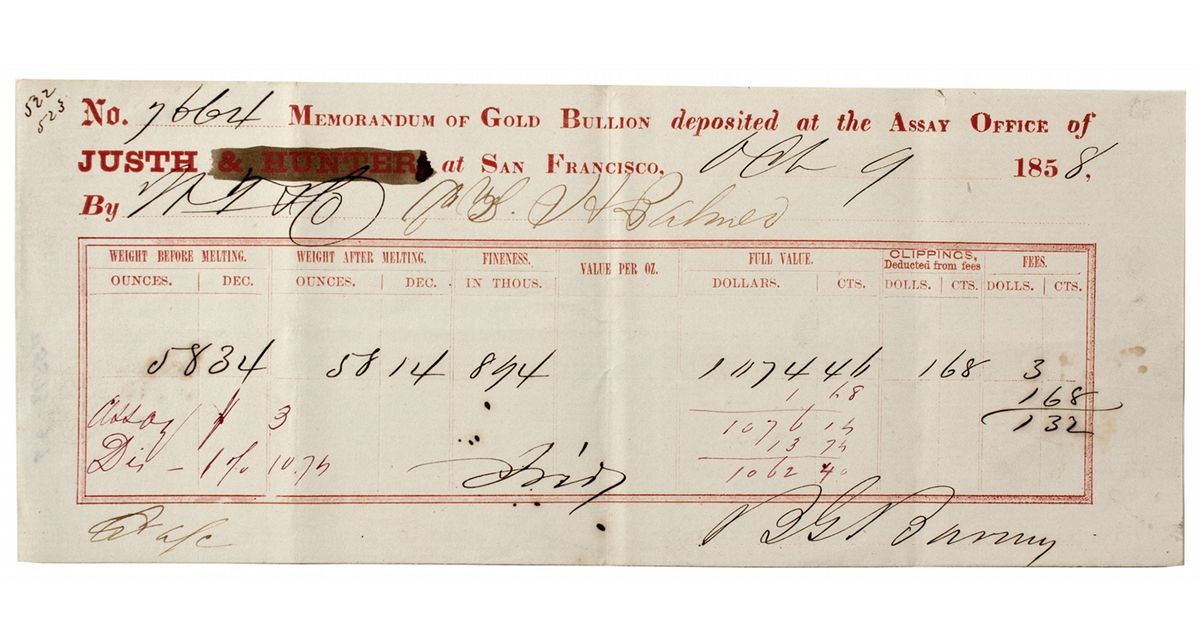 522
523
No. 7664 MEMORANDUM OF GOLD BULLION deposited at the ASSAY OFFICE of
JUSTH & HUNTER, at SAN FRANCISCO, Oct 9 1858,
By
WEIGHT BEFORE MELTING. WEIGHT AFTER MELTING. FINENESS. VALUE PER OZ. FULL VALUE. CLIPPINGS, Deducted from fees FEES.
OUNCES. DEC. OUNCES. DEC. IN THOUS. DOLLARS. CTS. DOLLS. CTS. DOLLS. CTS.
58 34 58 14 894 1074 46 1 68 3
1 68 1 68
Assay $ 3 1076 14 1 32
Dis - 1% 10.74 13 74
1062 40
B G Barney